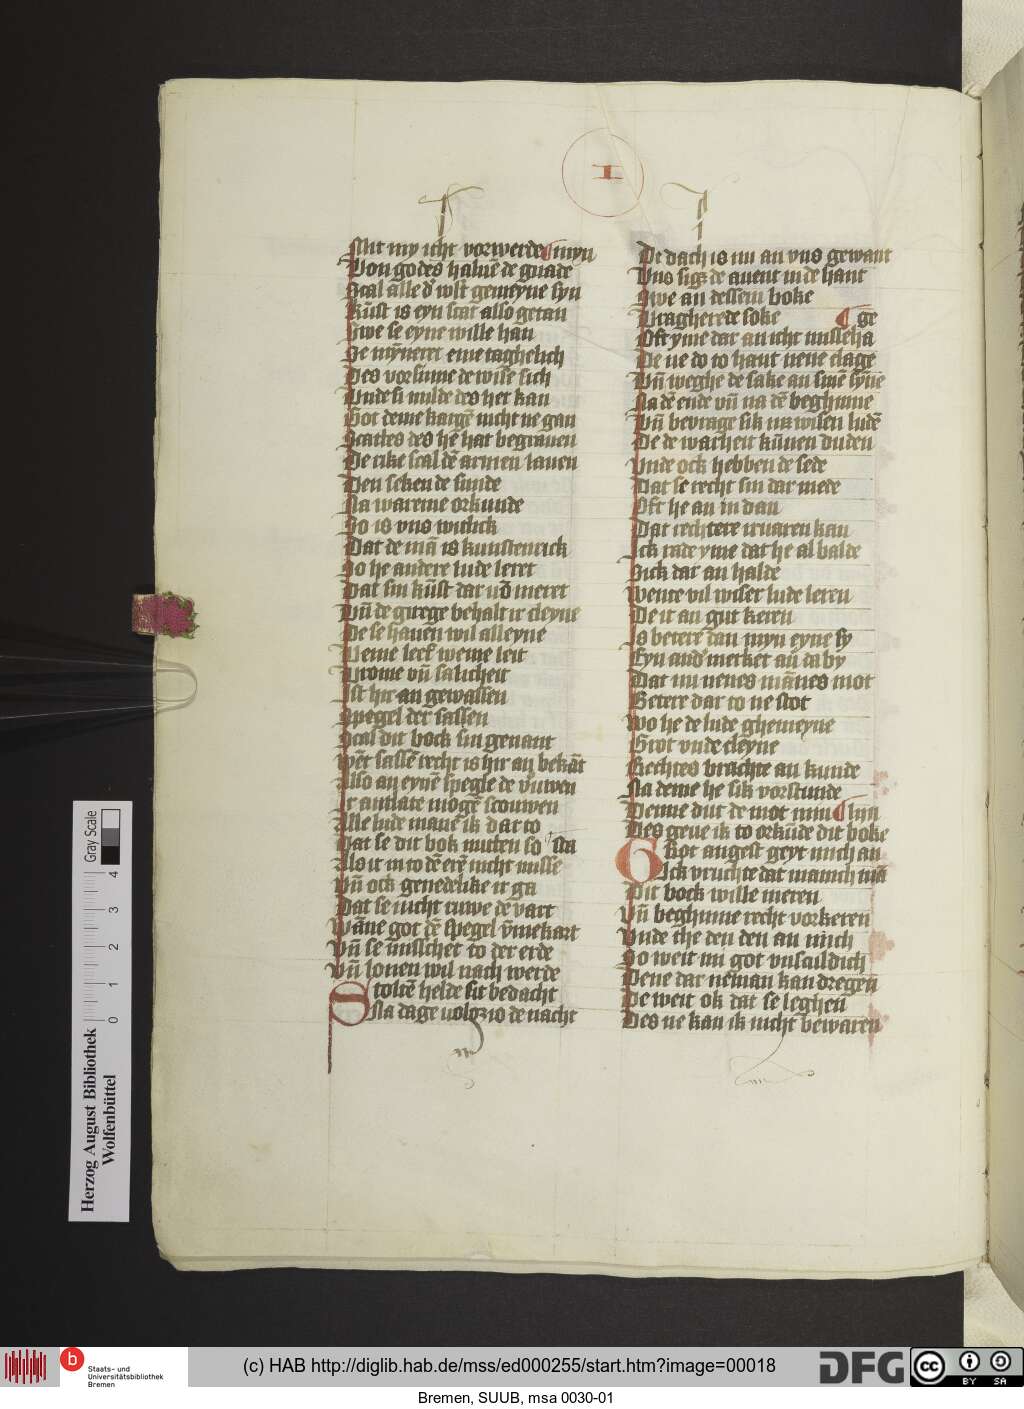 I
Mit my icht vorwerde ¶ myn
Von godes haluē de gnade
Scal alle d' w'lt gemeyne syn
Kūst is eyn scat also getan
Swe se eyne wille han
He mȳneret eme taghelich
Des vorsinne de wise sich
Vnde si milde des het kan
Got deme kargē nicht ne gan
Scattes des he hat begrauen
De rike scal dē armen lauen
Den seken de sunde
Na wareme orkunde
So is vns witlick
Dat de mā is kunstenrick
So he andere lude leret
Dat sin kūst dar uō meret
Vn̄ de girege behalt ir cleyne
De se hauen wil alleyne
Leme leef weme leit
Vrome vn̄ salicheit
Ist hir an gewassen
Spegel der sassen
Scal dit bock sin genant
Wēt sassē recht is hir an bekāt
Also an eynē spegle de vruwen
Ir antlate mogē scouwen
Alle lude mane ik dar to
Dat se dit bok nutten so
Als it in to dē erē nicht misse sta
Vn̄ ock genedelike it ga
Dat se nicht ruwe de vart
Wāne got dē spegel v̄mekart
Vn̄ se v̄misschet to der erde
Vn̄ lonen wil nach werde
Stoltē helde sit bedacht
Na dage volgz io de nacht
De dach is nu an vns gewant
Vns sigz de auent in de hant
Swe an dessem boke
Vraghe rede soke ¶ ge
Oft yme dar an icht misseha
De ne do to hant nene clage
Vn̄ weghe de sake an sinē synē
Na dē ende vn̄ na dē beghinne
Vn̄ bevrage sik na wisen ludē
De de warheit kūnen duden
Vnde ock hebben de sede
Dat se recht sin dar mede
Oft he an in dan
Dat rechtere irvaren kan
Ick rade yme dat he al balde
Sick dar an halde
Wente vil wiser lude leren
De it an gut keren
Is betere dan myn eyne sy
Eyn and' merket an dā by
Dat nu nenes mānes mot
Betere dar to ne stot
Wo he de lude ghemeyne
Grot vnde cleyne
Rechtes brachte an kunde
Na deme he sik vorstunde
Deme dut de mot min ¶ lyn
Des geue ik to orkūde dit boke
Grot angest geyt mich an
Ick vruchte dat mannich mā
Dit bock wille meren
Vn̄ beghinne recht vorkeren
Vnde the den den an mich
So weit mi got vnsculdich
Dene dar neman kan dregen
De weit ok dat se leghen
Des ne kan ik nicht bewaren
Herzog August Bibliothek
Wolfenbüttel
Gray Scale
0 1 2 3 4
b
Staats- und
Universitätsbibliothek
Bremen
(c) HAB http://diglib.hab.de/mss/ed000255/start.htm?image=00018
DFG
cc BY SA
Bremen, SUUB, msa 0030-01